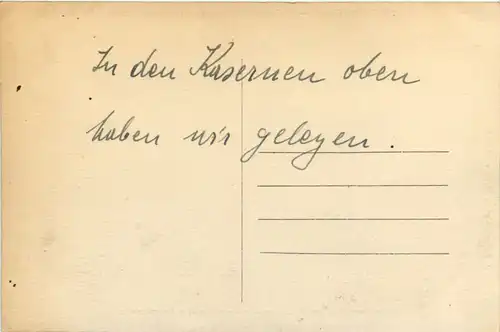 In den Kasernen oben
haben wir gelegen.